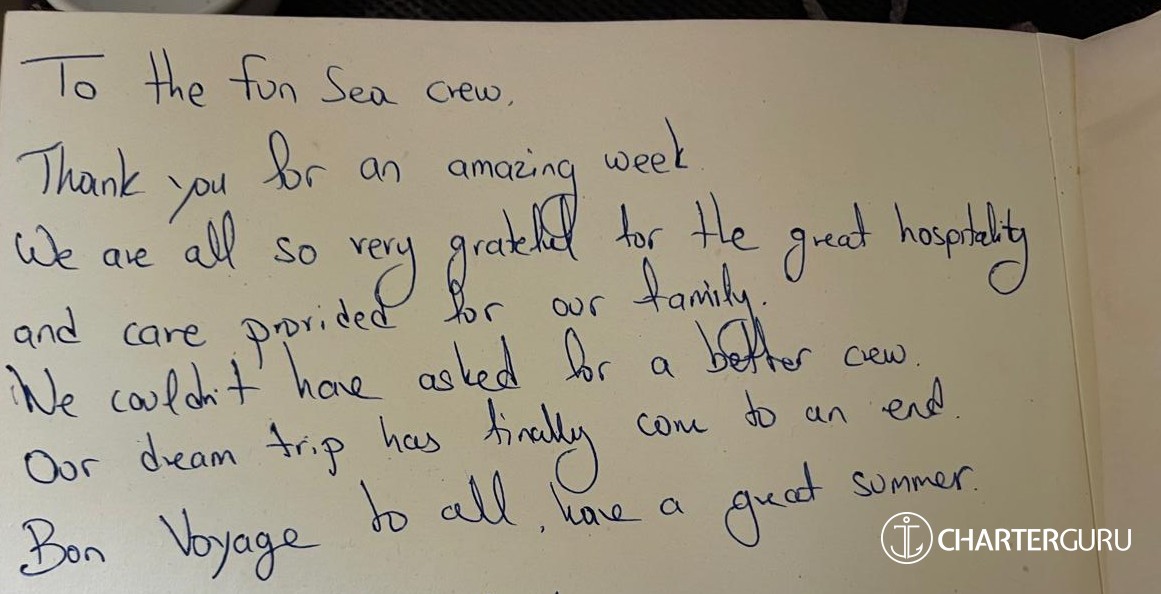 To the fun Sea crew,
Thank you for an amazing week.
We are all so very grateful for the great hospitality
and care provided for our family.
We couldn't have asked for a better crew.
Our dream trip has finally come to an end.
Bon Voyage to all, have a great summer.
CHARTERGURU